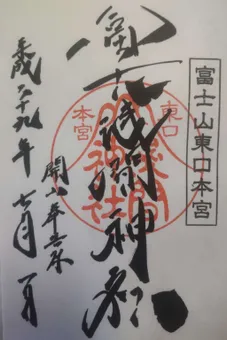 富士山東口本宮
冨士浅間神社
東口
本宮
浅間神社
開山奉告祭
平成二十九年七月一日